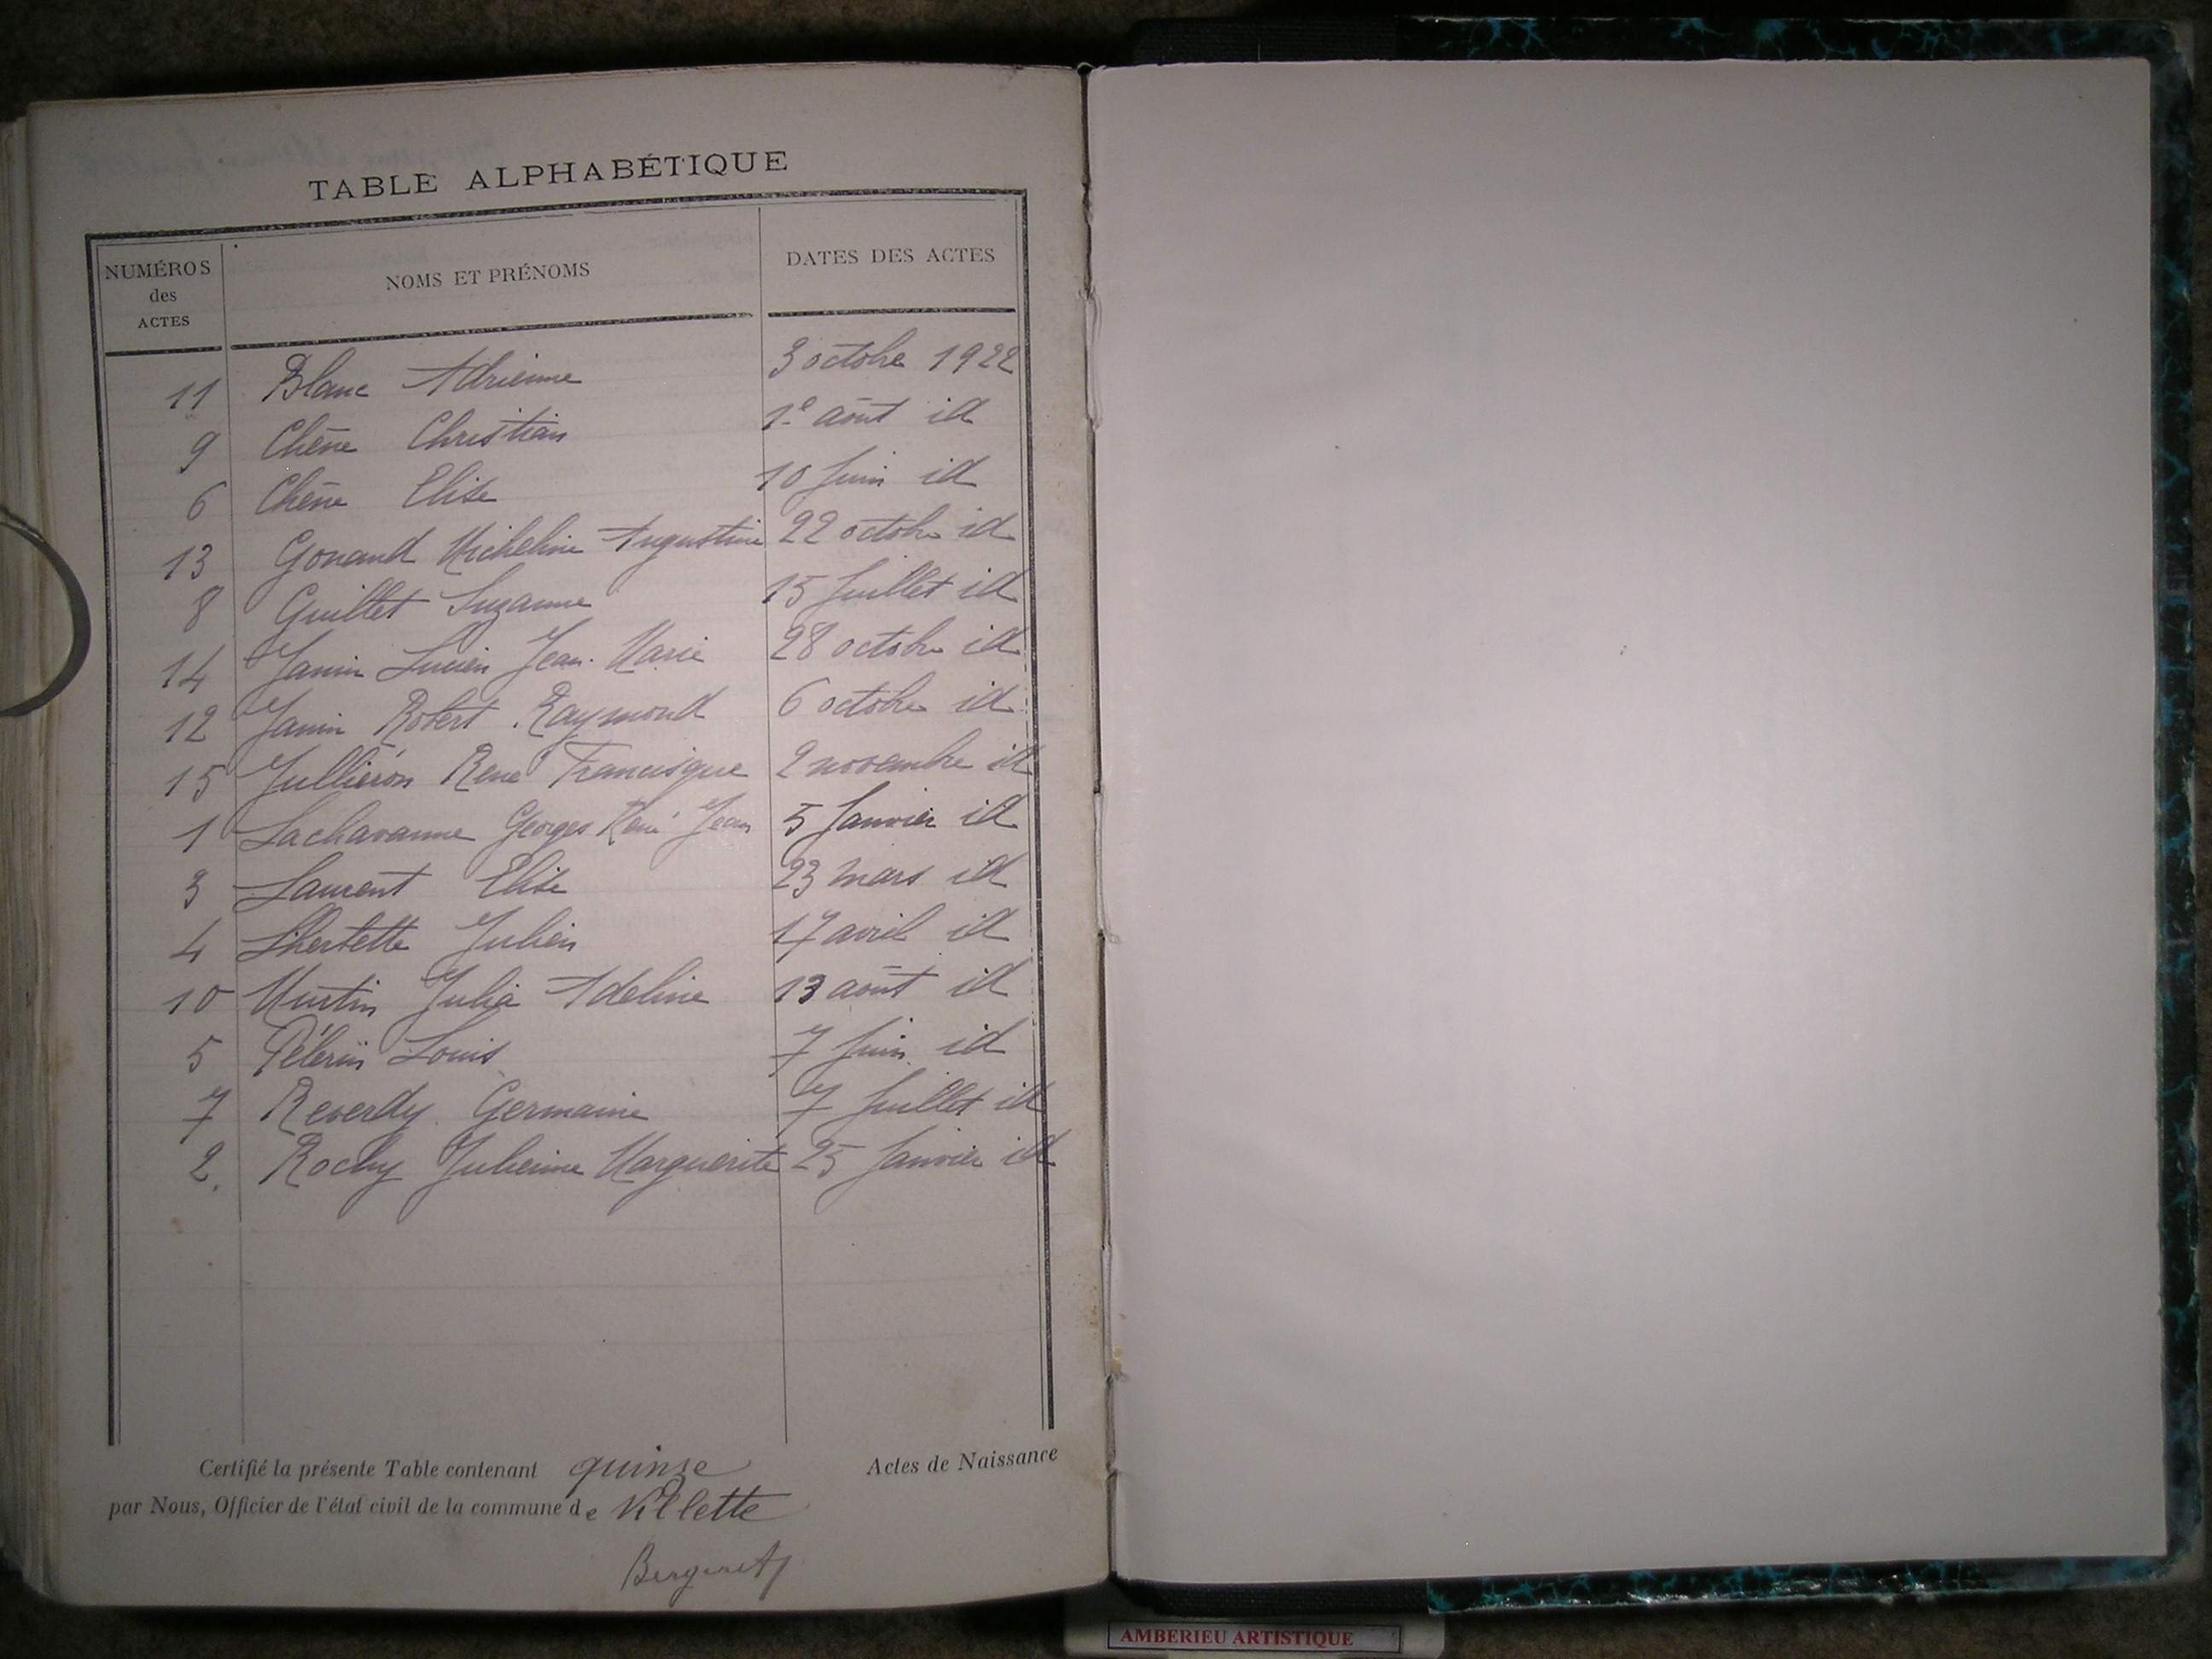 TABLE ALPHABÉTIQUE
NUMÉROS des ACTES NOMS ET PRÉNOMS DATES DES ACTES
11 Blanc Adrienne 3 octobre 1922
9 Chêne Christian 1e août id
6 Chêne Elise 10 Juin id
13 Gonand Micheline Augustine 22 octobre id
8 Guillet Suzanne 15 Juillet id
14 Janin Lucien Jean-Marie 28 octobre id
12 Janin Robert Raymond 6 octobre id
15 Jullieron René Francisque 2 novembre id
1 Lachavanne Georges René Jean 5 Janvier id
3 Laurent Elise 23 mars id
4 Lhertette Julien 17 avril id
10 Mustin Julia Adeline 13 août id
5 Pélerin Louis 7 Juin id
7 Reverdy Germaine 7 Juillet id
2. Rochy Julienne Marguerite 25 Janvier id
Certifié la présente Table contenant quinze Actes de Naissance
par Nous, Officier de l'état civil de la commune de Villette
AMBERIEU ARTISTIQUE